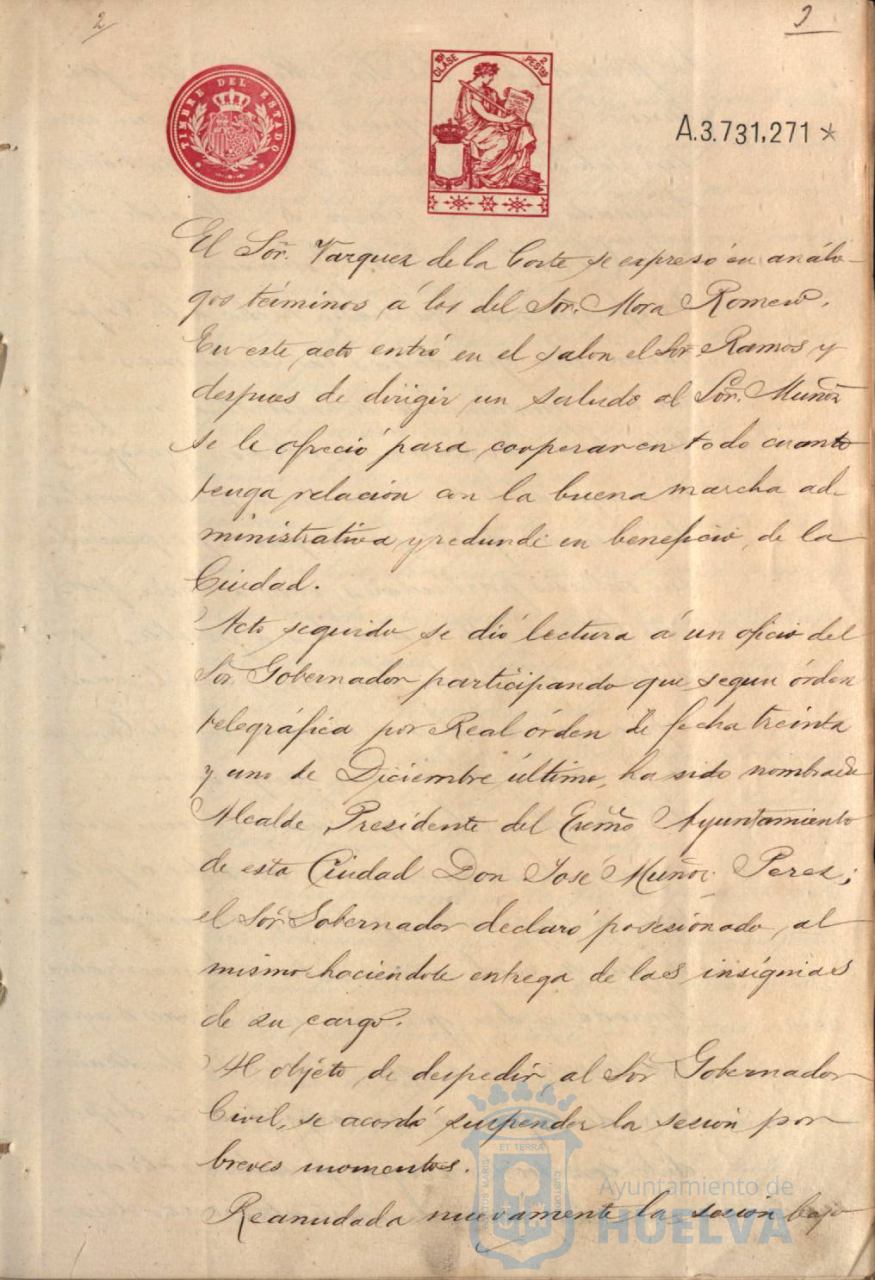 2
2
TIMBRE DEL ESTADO
10ª CLASE
2 PESTAS
A.3.731,271 *
El Sor. Vazquez de la Corte se expresó en análo-
gos términos á los del Sor. Mora Romero.
En este acto entró en el salon el Sor. Ramos y
despues de dirigir un saludo al Sor. Muñoz
se le ofreció para cooperar en todo cuanto
tenga relación con la buena marcha ad-
ministrativa y redunde en beneficio de la
Ciudad.
Acto seguido se dió lectura á un oficio del
Sor. Gobernador participando que segun órden
telegráfica por Real órden de fecha treinta
y uno de Diciembre último, ha sido nombrado
Alcalde Presidente del Excmo Ayuntamiento
de esta Ciudad Don José Muñoz Perez;
el Sor. Gobernador declaró posesionado al
mismo haciendole entrega de las insignias
de su cargo.
Al objéto de despedir al Sor Gobernador
Civil, se acordó suspender la sesion por
breves momentos.
Reanudada nuevamente la sesion bajo
ET TERRA
PORTUS MARIS
CUSTODIA
Ayuntamiento de
HUELVA